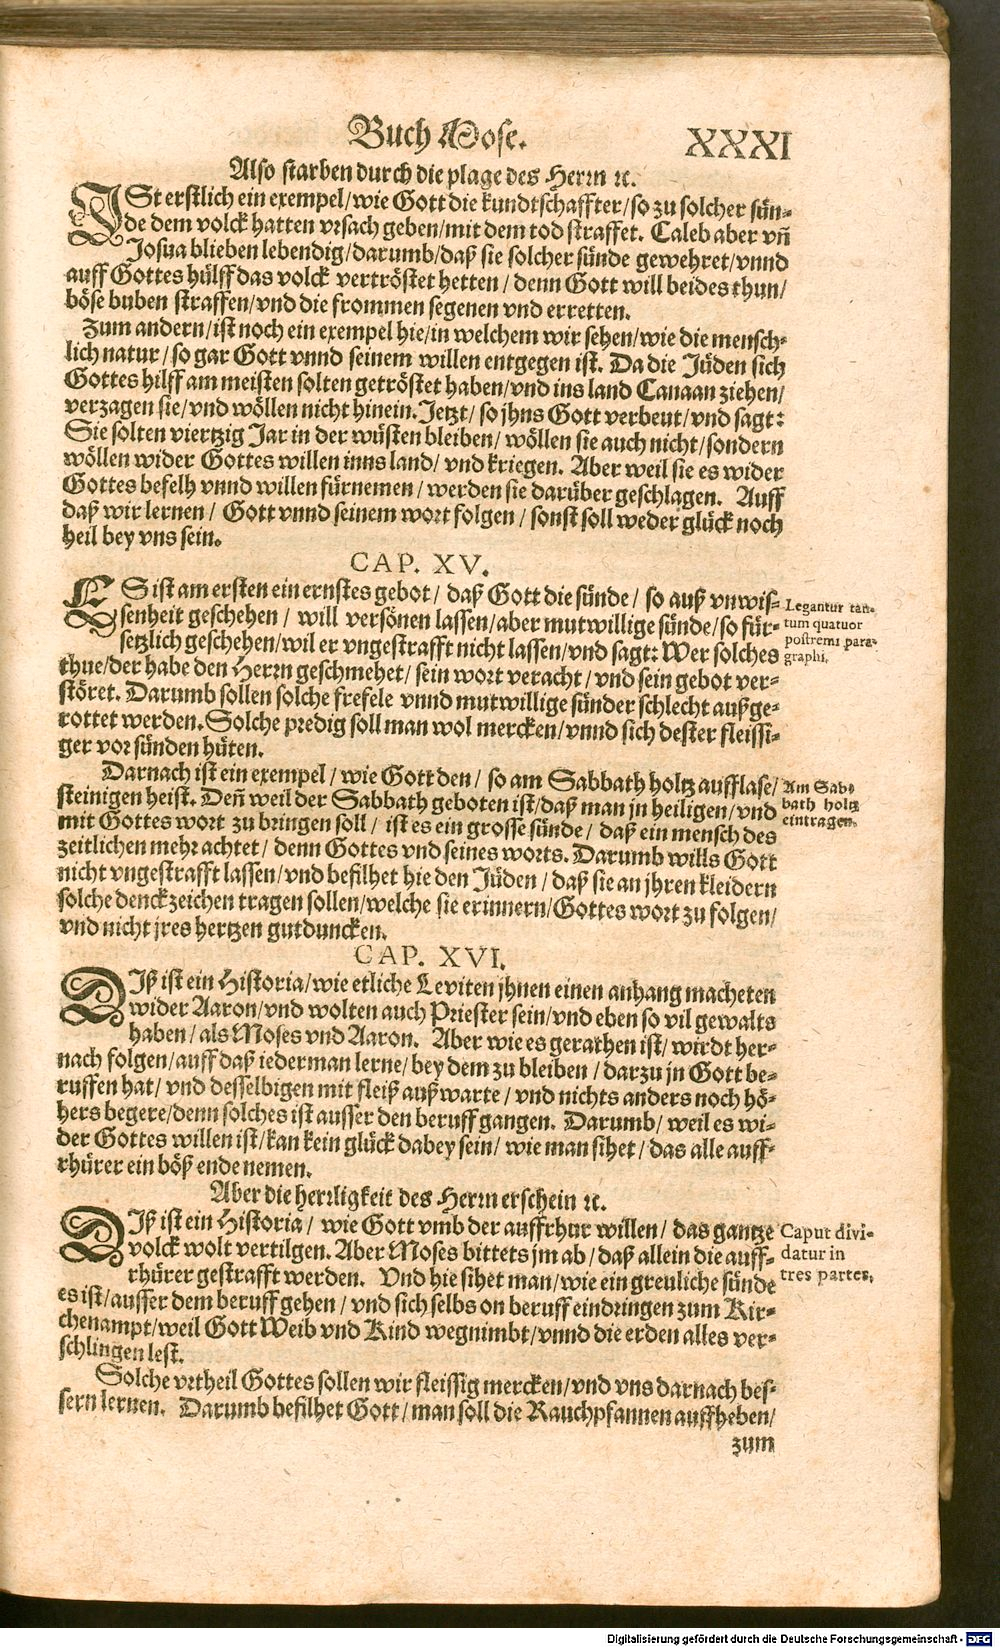 Buch Mose. XXXI
Also starben durch die plage des Herrn ꝛc.
JSt erstlich ein exempel/wie Gott die kundtschaffter/so zu solcher sün-
de dem volck hatten vrsach geben/mit dem tod straffet. Caleb aber vñ
Josua blieben lebendig/darumb/daß sie solcher sünde gewehret/vnnd
auff Gottes hülff das volck vertröstet hetten/ denn Gott will beides thun/
böse buben straffen/vnd die frommen segenen vnd erretten.
Zum andern/ist noch ein exempel hie/in welchem wir sehen/wie die mensch-
lich natur/so gar Gott vnnd seinem willen entgegen ist. Da die Jüden sich
Gottes hilff am meisten solten getröstet haben/vnd ins land Canaan ziehen/
verzagen sie/vnd wöllen nicht hinein. Jetzt/ so jhns Gott verbeut/vnd sagt:
Sie solten viertzig Jar in der wüsten bleiben/ wöllen sie auch nicht/sondern
wöllen wider Gottes willen inns land/ vnd kriegen. Aber weil sie es wider
Gottes befelh vnnd willen fürnemen/ werden sie darüber geschlagen. Auff
daß wir lernen/ Gott vnnd seinem wort folgen/ sonst soll weder glück noch
heil bey vns sein.
CAP. XV.
ES ist am ersten ein ernstes gebot/ daß Gott die sünde/ so auß vnwis-
senheit geschehen/ will versönen lassen/aber mutwillige sünde/so für-
setzlich geschehen/wil er vngestrafft nicht lassen/vnd sagt: Wer solches
thue/der habe den Herrn geschmehet/ sein wort veracht/ vnd sein gebot ver-
störet. Darumb sollen solche frefele vnnd mutwillige sünder schlecht außge-
rottet werden. Solche predig soll man wol mercken/vnnd sich dester fleissi-
ger vor sünden hüten.
Legantur tan-
tum quatuor
postremi para-
graphi.
Darnach ist ein exempel/ wie Gott den/ so am Sabbath holtz aufflase/
steinigen heist. Deñ weil der Sabbath geboten ist/daß man jn heiligen/vnd
mit Gottes wort zu bringen soll/ ist es ein grosse sünde/ daß ein mensch des
zeitlichen mehr achtet/ denn Gottes vnd seines worts. Darumb wills Gott
nicht vngestrafft lassen/vnd befilhet hie den Jüden/ daß sie an jhren kleidern
solche denckzeichen tragen sollen/welche sie erinnern/Gottes wort zu folgen/
vnd nicht jres hertzen gutduncken.
Am Sab-
bath holtz
eintragen.
CAP. XVI.
DIß ist ein Historia/wie etliche Leviten jhnen einen anhang macheten
wider Aaron/vnd wolten auch Priester sein/vnd eben so vil gewalts
haben/ als Moses vnd Aaron. Aber wie es gerathen ist/ wirdt her-
nach folgen/auff daß jederman lerne/ bey dem zu bleiben/ darzu jn Gott be-
ruffen hat/ vnd desselbigen mit fleiß außwarte/ vnd nichts anders noch hö-
hers begere/denn solches ist ausser den beruff gangen. Darumb/ weil es wi-
der Gottes willen ist/kan kein glück dabey sein/ wie man sihet/ das alle auff-
rhürer ein böß ende nemen.
Aber die herrligkeit des Herrn erschein ꝛc.
DIß ist ein Historia/ wie Gott vmb der auffrhur willen/ das gantze
volck wolt vertilgen. Aber Moses bittets jm ab/ daß allein die auff-
rhürer gestrafft werden. Vnd hie sihet man/wie ein greuliche sünde
es ist/ausser dem beruff gehen/ vnd sich selbs on beruff eindringen zum Kir-
chenampt/weil Gott Weib vnd Kind wegnimbt/vnnd die erden alles ver-
schlingen lest.
Caput divi-
datur in
tres partes.
Solche vrtheil Gottes sollen wir fleissig mercken/vnd vns darnach bes-
sern lernen. Darumb befilhet Gott/ man soll die Rauchpfannen auffheben/
zum
Digitalisierung gefördert durch die Deutsche Forschungsgemeinschaft - DFG